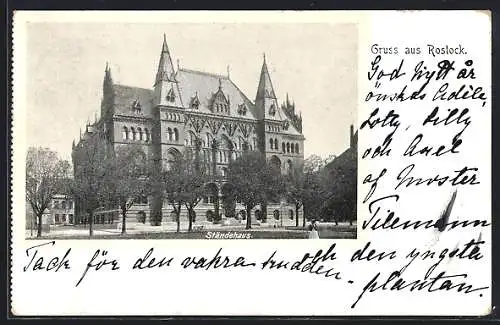 Gruss aus Rostock.
God Nytt År
önskas Adèle,
Lotty, Lilly
och Axel
af Moster
Tilemann
Ständehaus.
Tack för den vakra
och den yngsta
plantan.